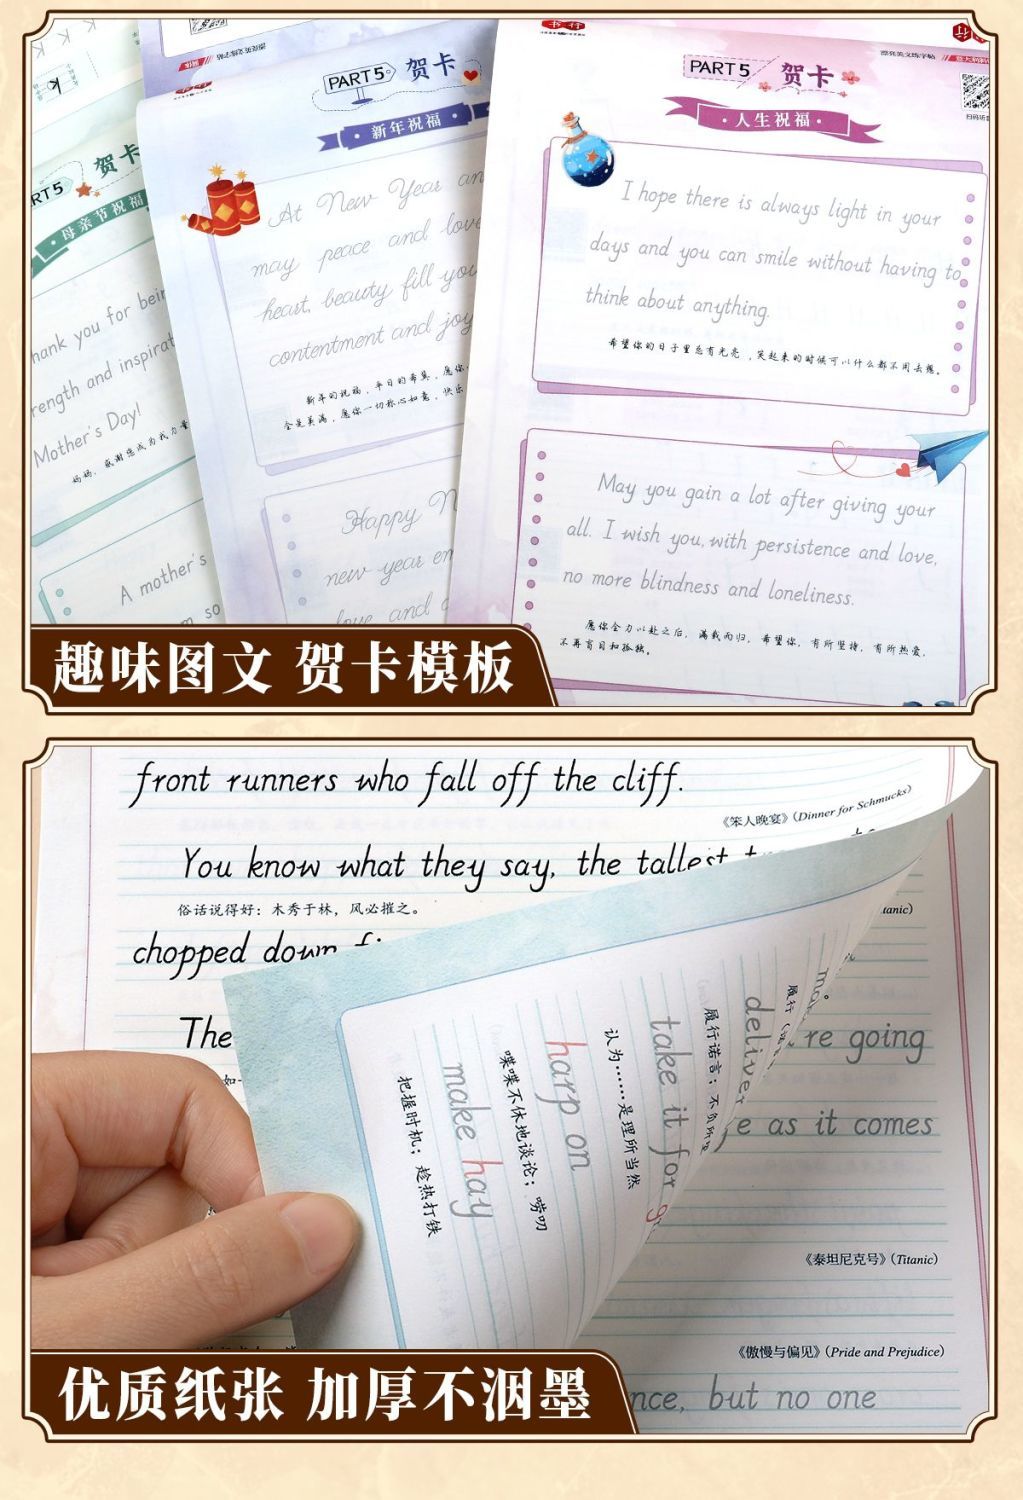 书行
漂亮美文练字帖
扫码听音
PART 5 贺卡
人生祝福
I hope there is always light in your
days and you can smile without having to
think about anything.
希望你的日子里总有光亮，笑起来的时候可以什么都不用去想。
May you gain a lot after giving your
all. I wish you, with persistence and love,
no more blindness and loneliness.
愿你全力以赴之后，满载而归，希望你，有所坚持，有所热爱，
不再盲目和孤独。
PART 5 贺卡
新年祝福
At New Year an
may peace and love
heart, beauty fill you
contentment and joy
新年的祝福，平日的希冀，愿你
全是美满，愿你一切称心如意，快乐
Happy N
new year en
love and
ART 5 贺卡
母亲节祝福
hank you for bein
rength and inspirat
Mother's Day!
妈妈，感谢您成为我力量
A mother's
m so
趣味图文 贺卡模板
front runners who fall off the cliff.
《笨人晚宴》（Dinner for Schmucks）
You know what they say, the tallest
俗话说得好：木秀于林，风必摧之。
tanic）
chopped down
The
re going
e as it comes
《泰坦尼克号》（Titanic）
《傲慢与偏见》（Pride and Prejudice）
nce, but no one
履行
deliver
履行诺言；不负所望
take it for g
认为……是理所当然
harp on
喋喋不休地谈论；唠叨
make hay
把握时机；趁热打铁
优质纸张 加厚不洇墨